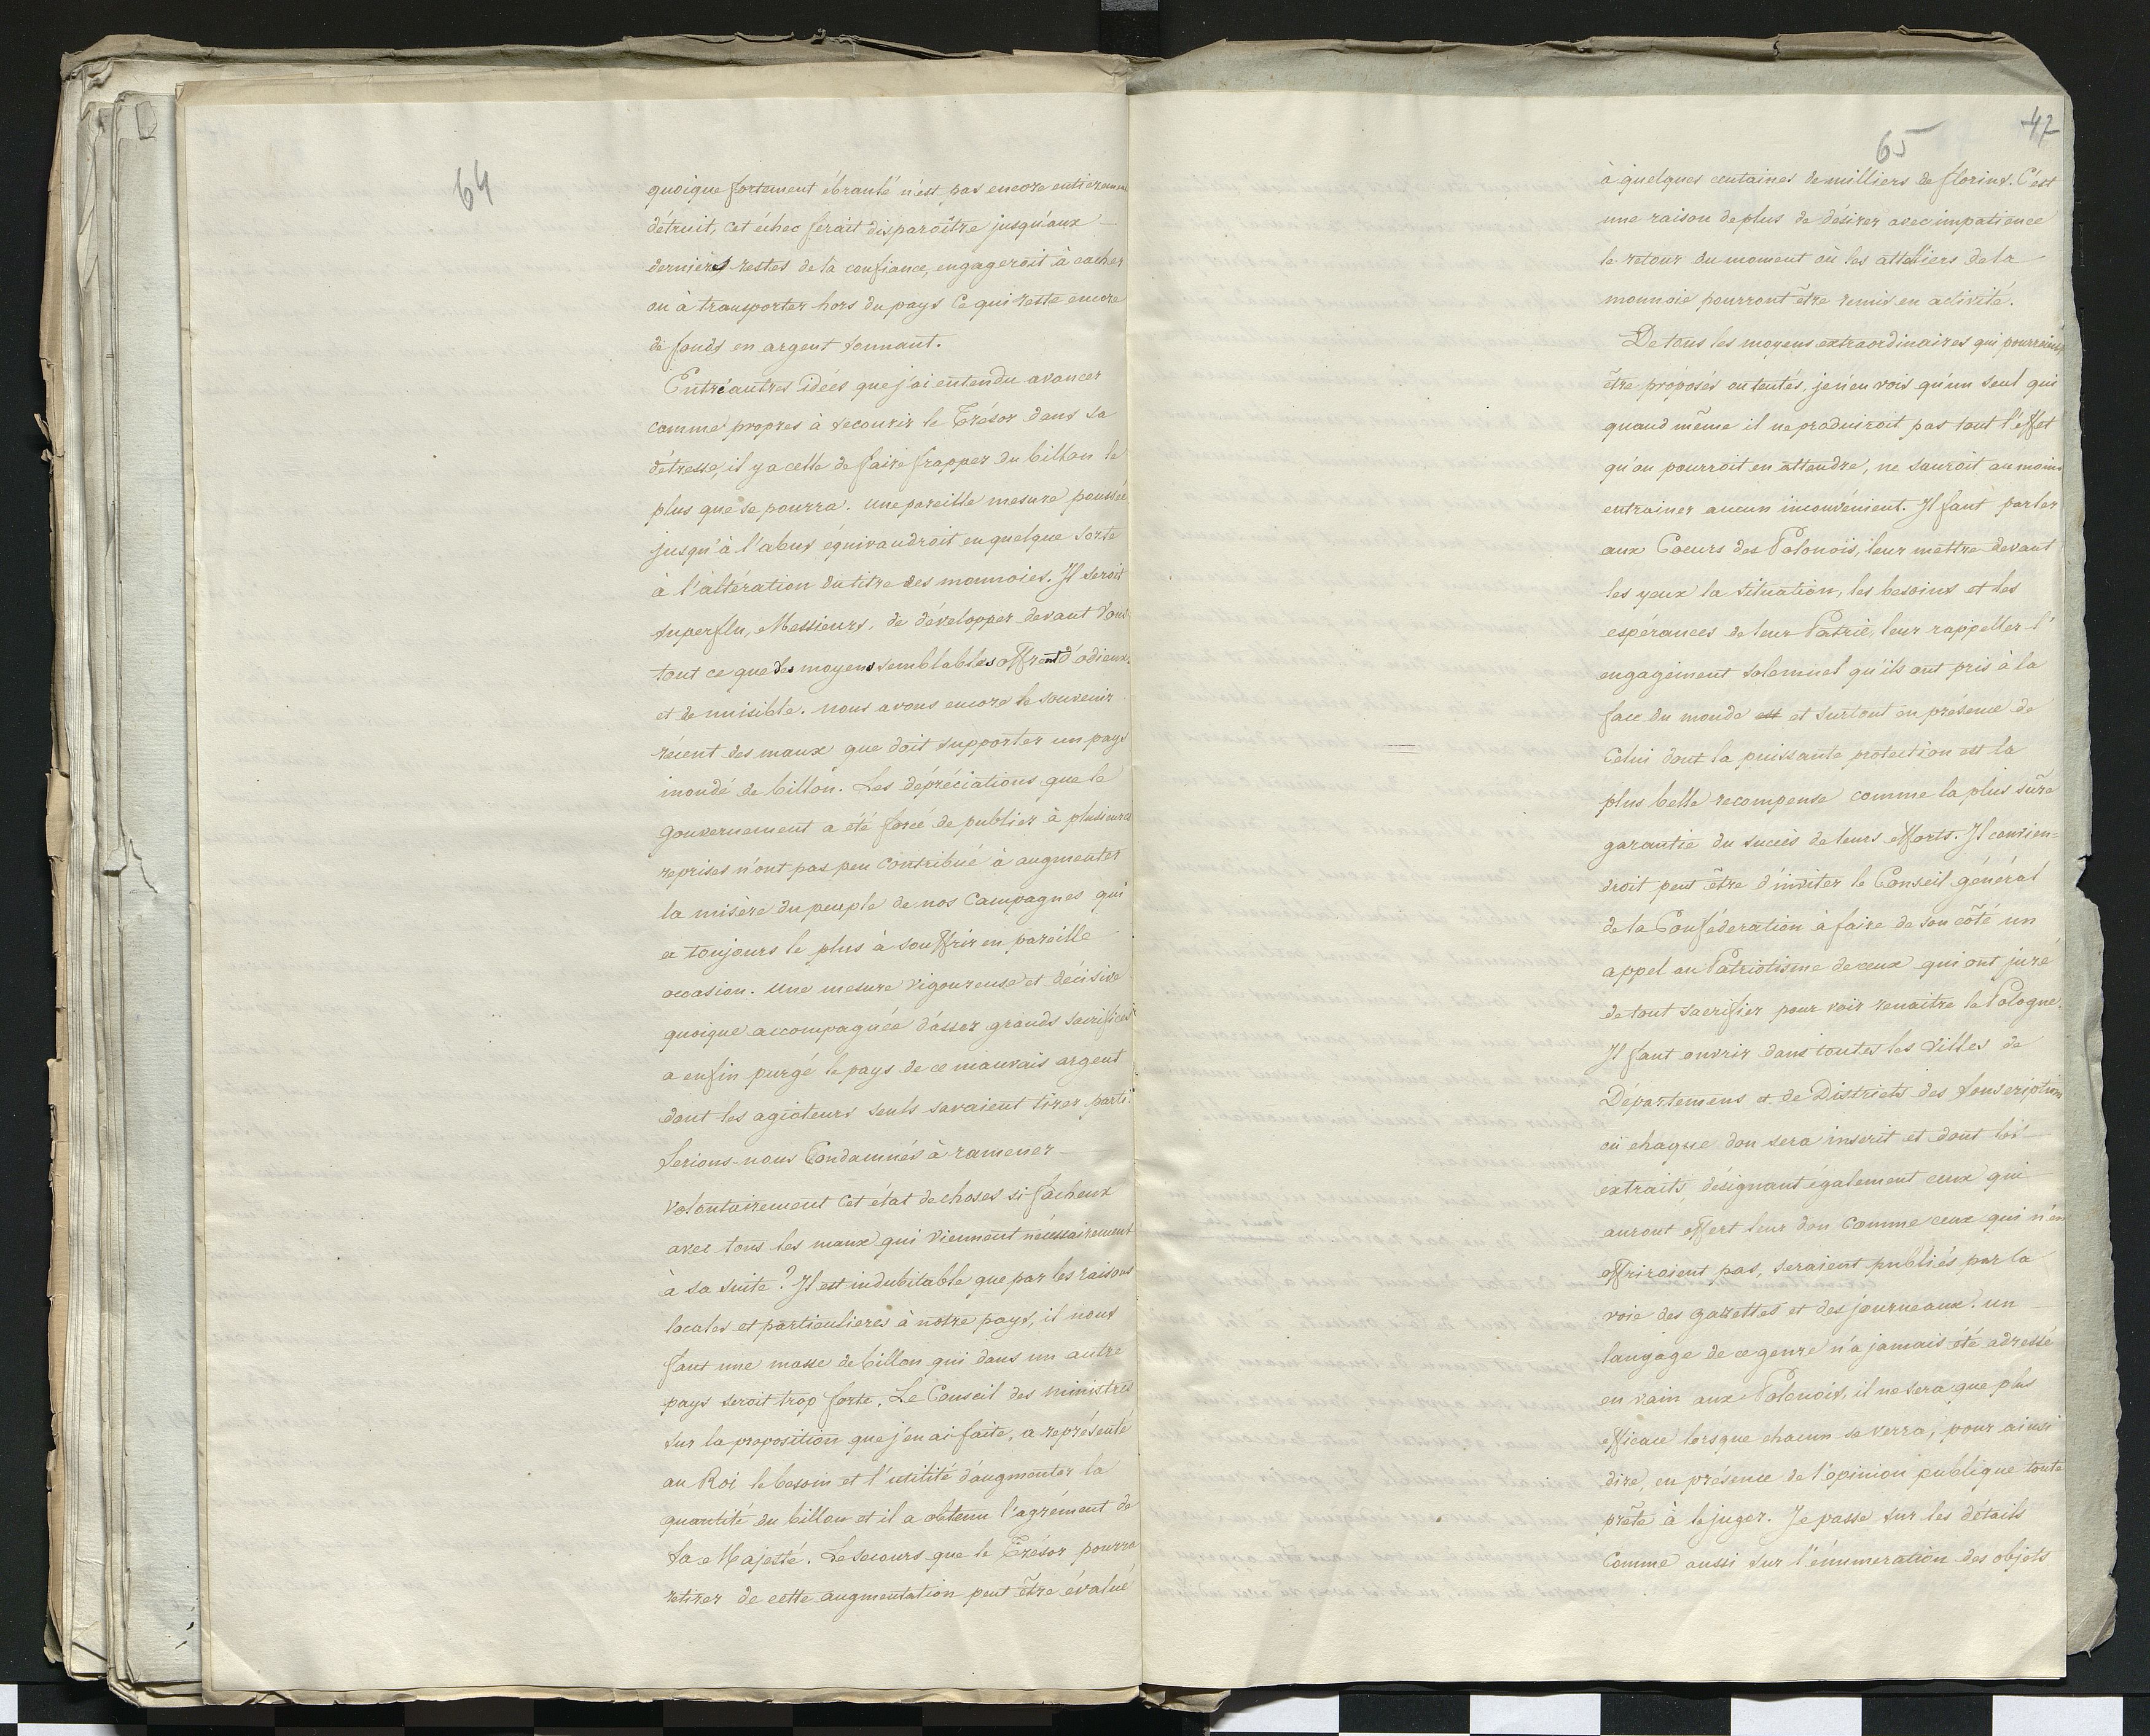 64
quoique fortement ébranlé n'est pas encore entierement
détruit, cet échec ferait disparoître jusqu'aux
derniers restes de la confiance, engageroit à cacher
ou à transporter hors du pays ce qui reste encore
de fonds en argent sonnant.
Entre autres idées que j'ai entendu avancer
comme propres à secourir le Trésor dans sa
détresse, il y a celle de faire frapper du billon le
plus que se pourra. une pareille mesure poussée
jusqu'à l'abus équivaudroit en quelque sorte
à l'altération du titre des monnoies. Il seroit
superflu, Messieurs, de développer devant Vous
tout ce que des moyens semblables offrent d'odieux
et de nuisible. nous avons encore le souvenir
récent des maux que doit supporter un pays
inondé de billon. Les dépréciations que le
gouvernement a été forcé de publier à plusieurs
reprises n'ont pas peu contribué à augmenter
la misère du peuple de nos Campagnes qui
a toujours le plus à souffrir en pareille
occasion. Une mesure vigoureuse et décisive
quoique accompagnée d'assez grands sacrifices
a enfin purgé le pays de ce mauvais argent
dont les agioteurs seuls savaient tirer parti.
Serions-nous Condamnés à ramener
volontairement cet état de choses si fâcheux
avec tous les maux qui viennent nécessairement
à sa suite? Il est indubitable que par les raisons
locales et particulieres à notre pays, il nous
faut une masse de billon qui dans un autre
pays seroit trop forte. Le Conseil des ministres
sur la proposition que j'en ai faite, a représenté
au Roi le besoin et l'utilité d'augmenter la
quantité du billon et il a obtenu l'agrément de
Sa Majesté. Le secours que le Trésor pourra
retirer de cette augmentation peut être évalué
65
42
à quelques centaines de milliers de florins. C'est
une raison de plus de désirer avec impatience
le retour du moment où les atteliers de la
monnoie pourront être remis en activité.
De tous les moyens extraordinaires qui pourroient
être proposés ou tentés, je n'en vois qu'un seul qui
quand même il ne produiroit pas tout l'effet
qu'on pourroit en attendre, ne sauroit au moins
entrainer aucun inconvénient. Il faut parler
aux Coeurs des Polonois, leur mettre devant
les yeux la situation, les besoins et les
espérances de leur Patrie, leur rappeller l'
engagement solemnel qu'ils ont pris à la
face du monde est et surtout en présence de
Celui dont la puissante protection est la
plus belle recompense comme la plus sûre
garantie du succès de leurs efforts. Il convien=
droit peut être d'inviter le Conseil général
de la Conféderation à faire de son côté un
appel au Patriotisme de ceux qui ont juré
de tout sacrifier pour voir renaitre la Pologne.
Il faut ouvrir dans toutes les Villes de
Départemens et de Districts des souscriptions
où chaque don sera inscrit et dont les
extraits, désignant également ceux qui
auront offert leur don comme ceux qui n'en
offriroient pas, seraient publiés par la
voie des gazettes et des journeaux. un
langage de ce genre n'a jamais été adressé
en vain aux Polonois, il ne sera que plus
efficace lorsque chacun se verra, pour ainsi
dire, en présence de l'opinion publique toute
prête à le juger. Je passe sur les détails
Comme aussi sur l'énumeration des objets